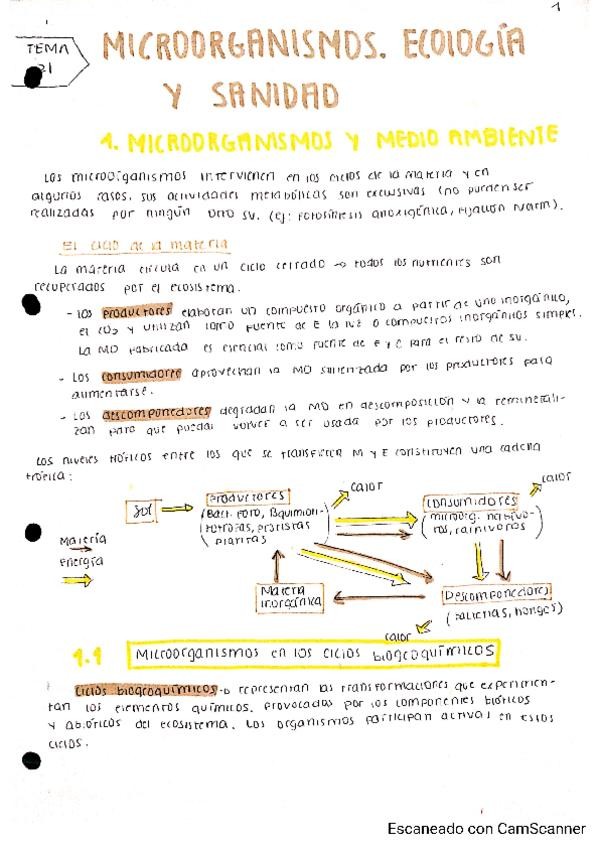 1
TEMA
21
MICROORGANISMOS. ECOLOGÍA
Y SANIDAD
1. MICROORGANISMOS Y MEDIO AMBIENTE
Los microorganismos intervienen en los ciclos de la materia y en
algunos casos, sus actividades metabólicas son exclusivas (no pueden ser
realizadas por ningún otro sv. (ej: fotosíntesis anoxigénica, fijación N atm).
El ciclo de la materia
La materia circula en un ciclo cerrado → todos los nutrientes son
recuperados por el ecosistema.
- Los productores elaboran un compuesto orgánico a partir de uno inorgánico,
el CO2 y utilizan como fuente de E la luz o compuestos inorgánicos simples.
La MO fabricada es esencial como fuente de E y C para el resto de sv.
- Los consumidores aprovechan la MO sintetizada por los productores para
alimentarse.
- Los descomponedores degradan la MO en descomposición y la reminerali-
zan para que pueda volver a ser usada por los productores.
Los niveles tróficos entre los que se transfieren M y E constituyen una cadena
trófica:
Sol
Productores
(Bact. foto, f quimion-
totrofas, protistas
plantas)
calor
Consumidores
(microorg.
ros, carnívoros)
calor
Materia
energía
Materia
inorgánica
Descomponedores
(bacterias, hongos)
calor
1.1 Microorganismos en los ciclos biogeoquímicos
Ciclos biogeoquímicos → representan las transformaciones que experimen-
tan los elementos químicos, provocadas por los componentes bióticos
y abióticos del ecosistema. Los organismos participan activas en estos
ciclos.
Escaneado con CamScanner